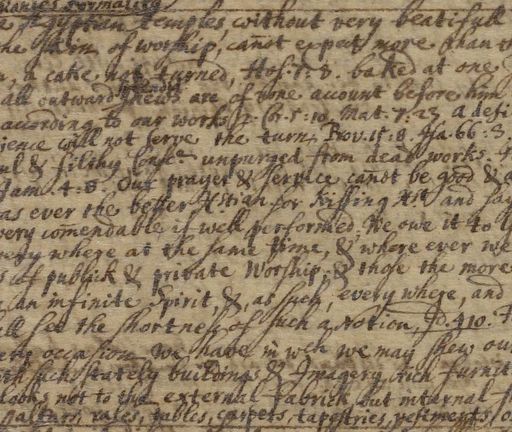 Formality
Ægyptian Temples, without very beatifull
the form of worship, cannot expect more than
a cake not turned, Hos. 7. 8. baked at one
all outward shews are of none account before him
according to our works, 2 Co. 5. 10. Mat. 7. 23 a defi
ience will not serve the turn, Prov. 15. 8. Isa. 66. 3
& filthy unpurged from dead works.
Jam. 4. 8. Our prayer & service cañot be good &
as ever the better for kissing and say
very comendable if well performed. We owe it to
every where at the same time, & where ever we
of publick & private Worship, & those the more
an infinite Spirit, &, as such, every where, and
see the shortness of such a Notion, p. 410.
occasion We have in wch we may shew our
such stately buildings & Imagery, rich furnit
looks not to the external fabrick but internal
rales, tables, carpets, tapestries, vestments